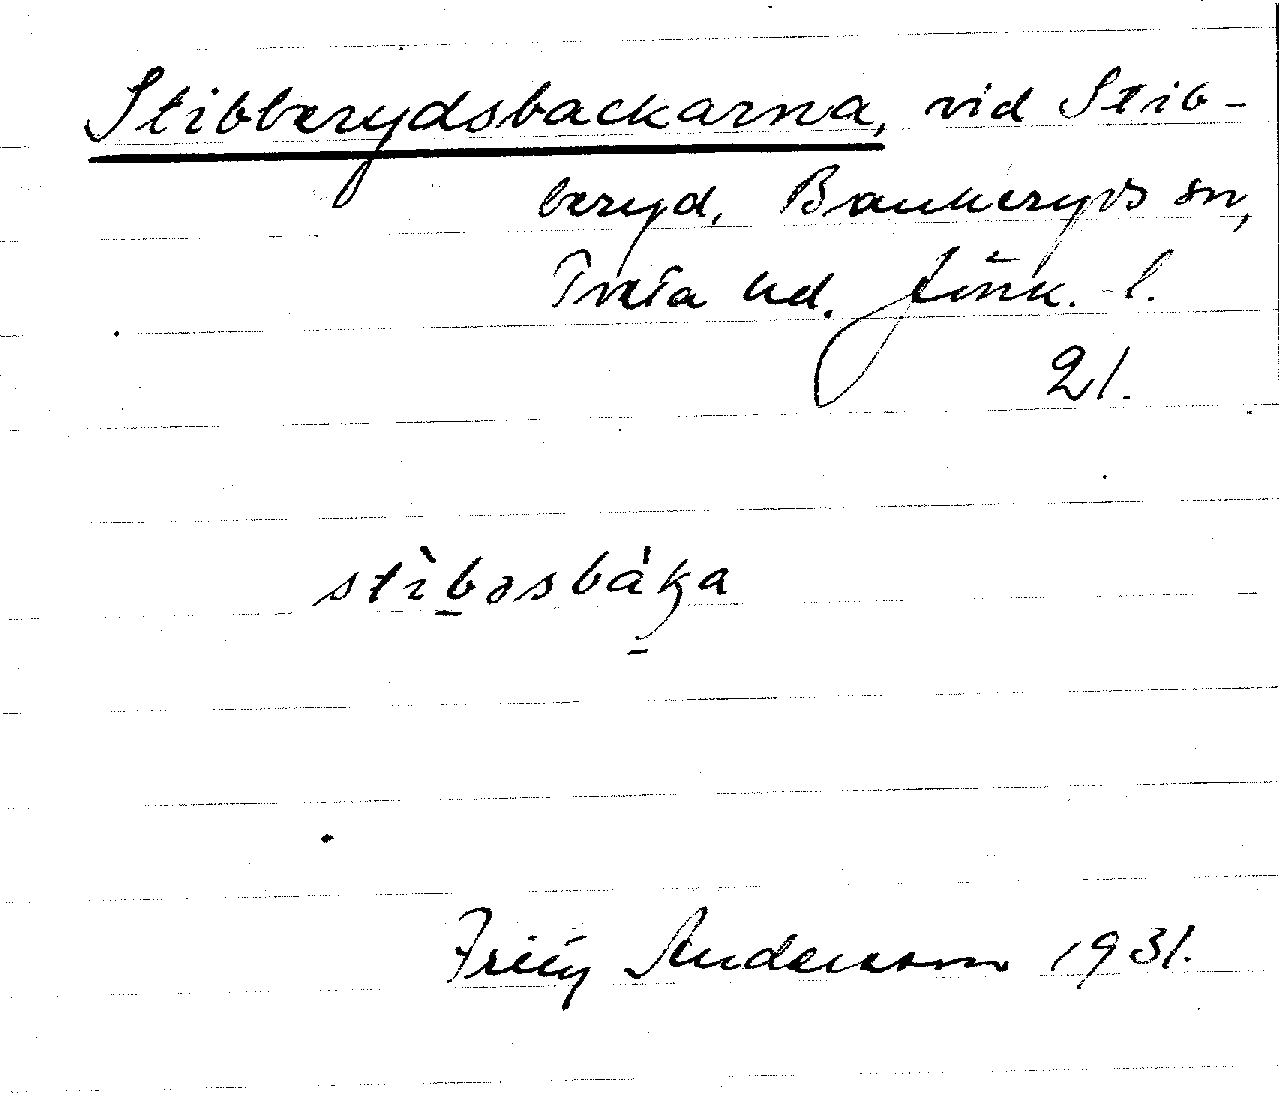 Stibberydsbackarna, vid Stib-
beryd, Bankeryds sn,
Tveta hd. Jönk. l.
21.
stìb̲əsbáka̲
Fritz Andersson 1931.